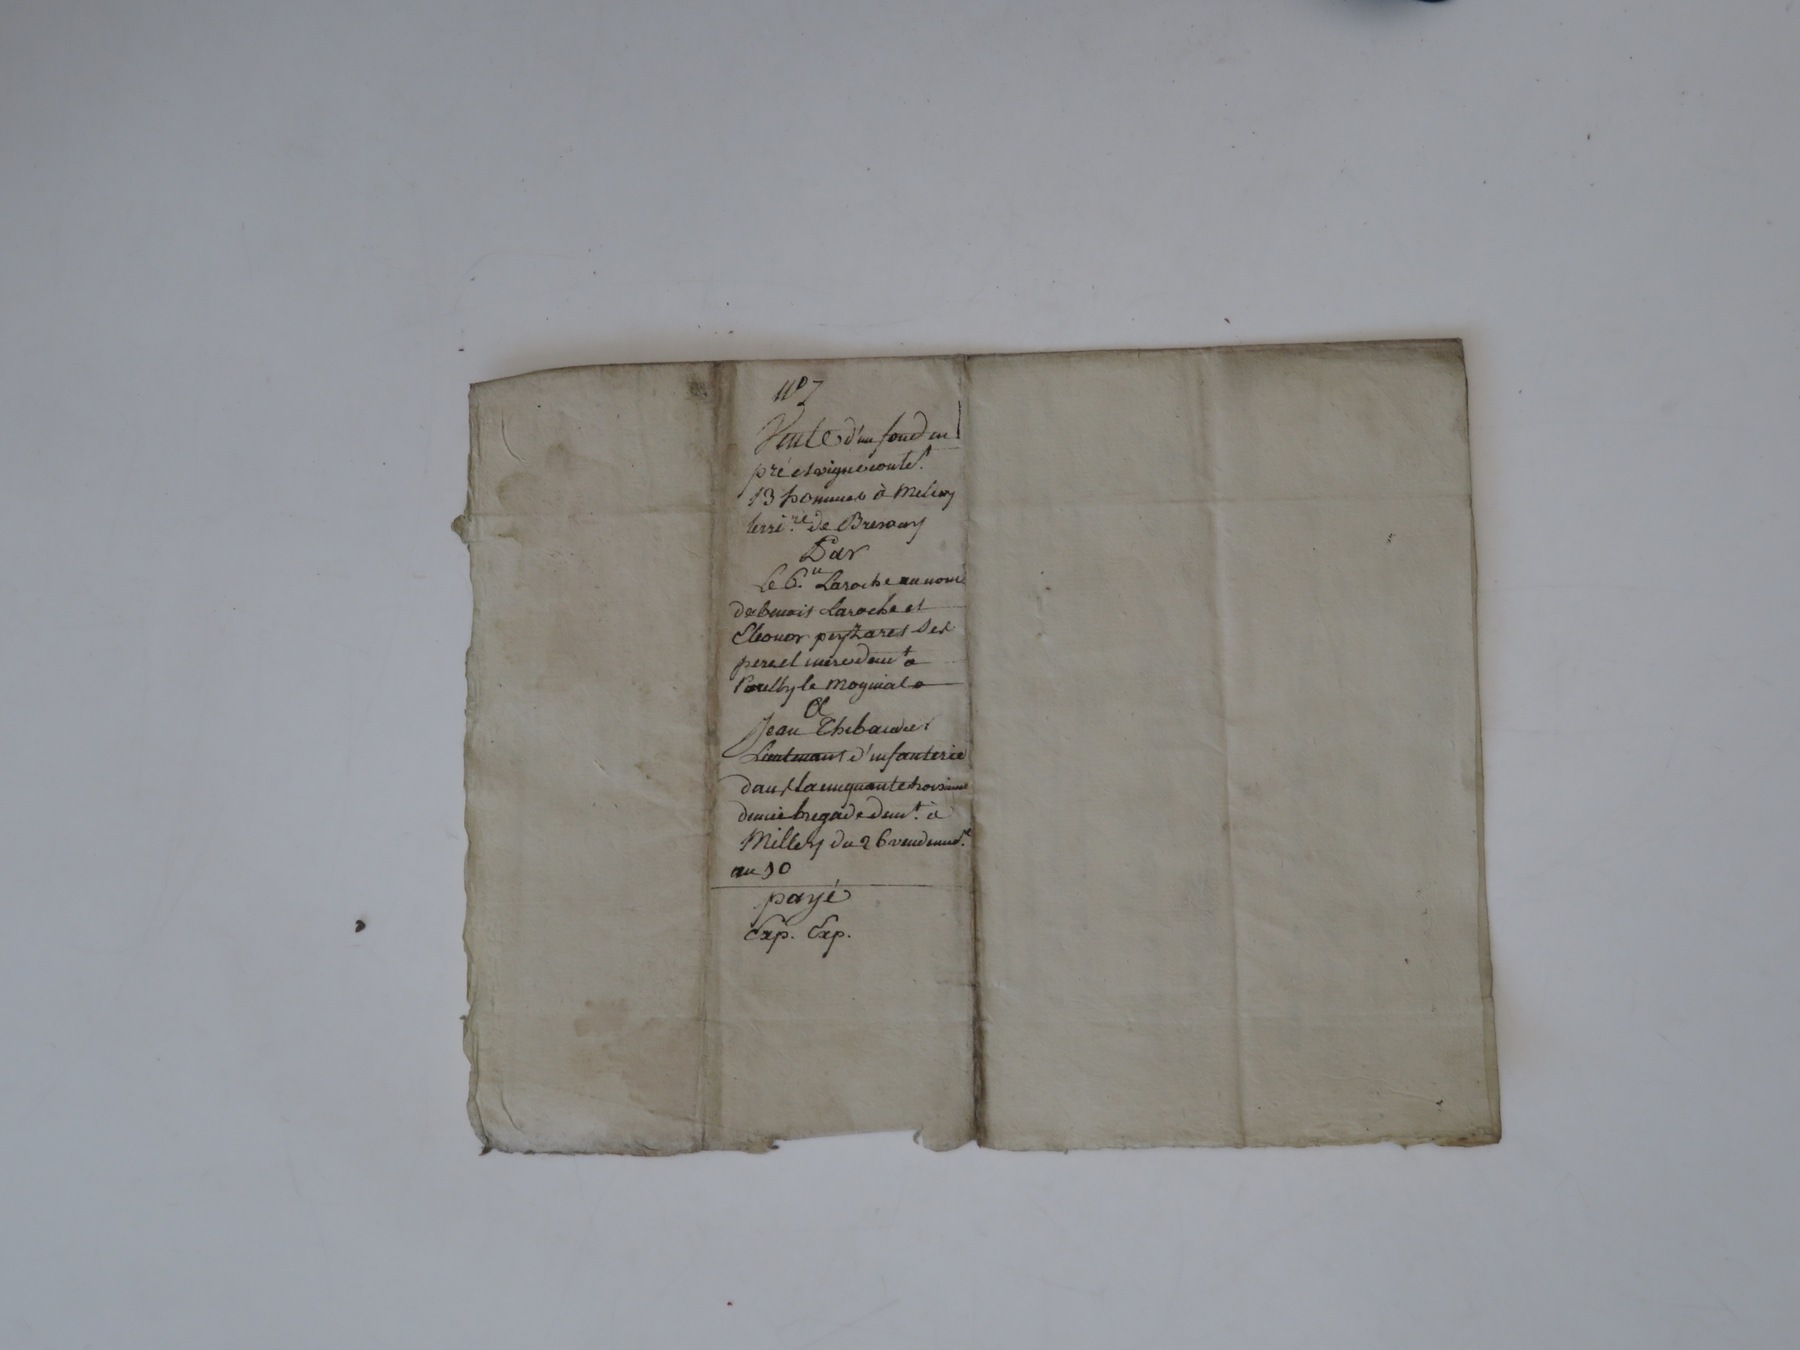 n° 7
Vente d'un fond en
pré et vigne conte.t
13 hommes à
terri.re de
Par
Le C.en Laroche au nom
de benoit Laroche et
Eleonor ses
pere et mere dem.t a
le monial
A
Jean Thibaudet
Lieutenant d'infanterie
dans la cinquante troisieme
demie brigade dem.t à
Millery du 26 vendem.re
an 10
payé
Exp. Exp.